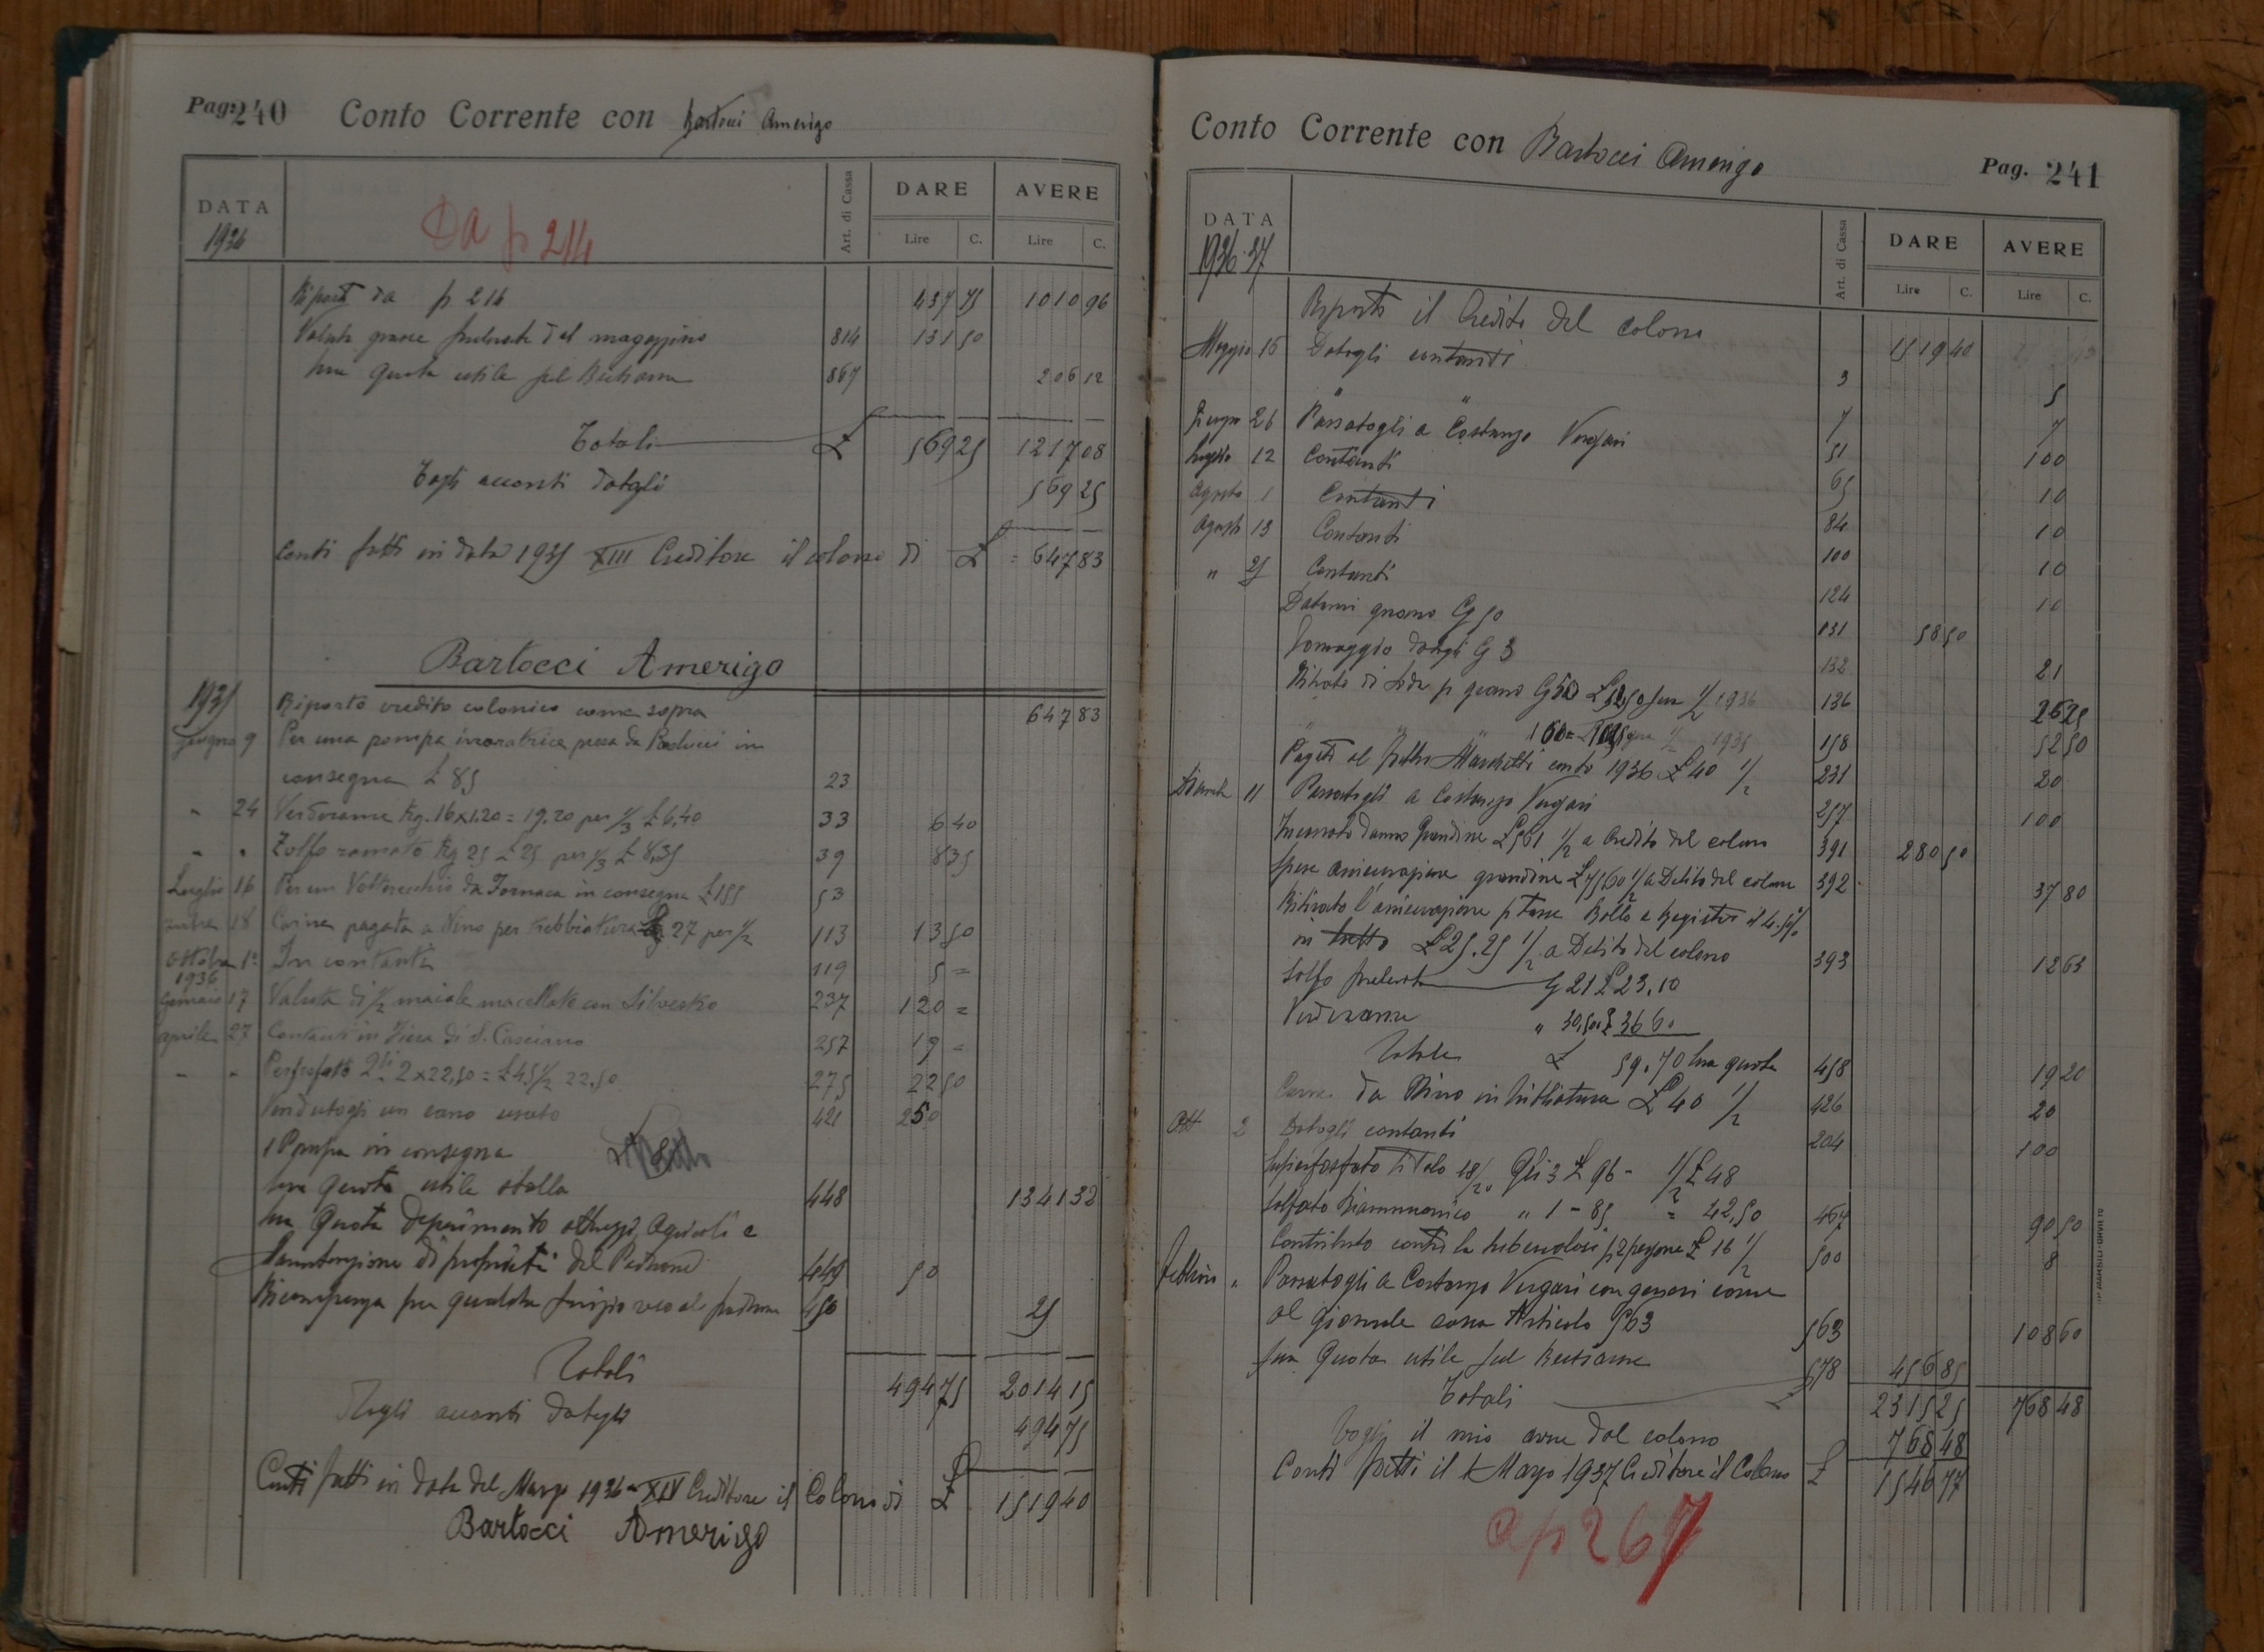 Pag. 240 Conto Corrente con Bartocci Amerigo
DATA Art. di Cassa DARE AVERE
1936 Da p 214
Lire C. Lire C.
Riporto da p 214 437 75 1010 96
Valuta grano prelevato dal magazzino 814 131 50
Sua quota utile sul Bestiame 867 206 12
Totali £ 569 25 1217 08
Togli acconti datigli 569 25
Conti fatti in data 1935 XIII Creditore il colono di £ = 647 83
Bartocci Amerigo
1935 Riporto credito colonico come sopra 647 83
giugno 9 Per una pompa irroratrice presa da in
consegna £ 85 23
" 24 Verderame Kg. 16x1.20 = 19.20 per 1/3 £ 6,40 33 6 40
" " Zolfo ramato Kg 25 £ 25 per 1/3 £ 8,35 39 8 35
Luglio 16 Per un Voltorecchio da Fornace in consegna £ 155 53
18 Carne pagata a Nino per trebbiatura 27 per 1/2 113 13 50
Ottobre 1° In contanti 119 5 =
1936
Gennaio 17 Valuta di 1/2 maiale macellato con Silvestro 237 120 =
aprile 27 Contanti in Fiera di S. Casciano 257 19 =
" " Perfosfato Qli 2x22,50 = £ 45 1/2 22,50 275 22 50
Vendutogli un carro usato 421 250
1 Pompa in consegna
Sua quota utile stalla 448 1341 32
Sua Quota deperimento attrezzi Agricoli e
Manutenzione di proprietà del Padrone 449 50
Ricompensa per qualche servizio reso al padrone 450 25
Totali 494 75 2014 15
Togli acconti datigli 494 75
Conti fatti in data del Marzo 1936 - XIV Creditore il Colono di £ 1519 40
Bartocci Amerigo
Conto Corrente con Bartocci Amerigo Pag. 241
DATA Art. di Cassa DARE AVERE
1936-37
Lire C. Lire C.
Riporto il Credito del colono 1519 40
Maggio 16 Datogli contanti 3 5
" " 7 7
Giugno 26 Passatogli a Costanzo Vergari 51 100
Luglio 12 Contanti 65 10
Agosto 1 Contanti 84 10
Agosto 13 Contanti 100 10
" 25 Contanti 124 10
Datomi grano G 50 131 58 50
Formaggio datogli G 3 132 21
Nitrato di Soda p grano G 50 1/2 1936 136 26 25
" " 1/2 1935 158 52 50
Pagati al fabbro Marchetti conto 1936 £ 40 1/2 231 20
11 Passatogli a Costanzo Vergari 257 100
Incassato danno Grandine £ 561 1/2 a Credito del colono 391 280 50
Spese assicurazione grandine £ 75,60 1/2 a Debito del colono 392 37 80
Ritirato l'assicurazione p Tasse Bollo e Registro il 4.50%
in tutto £ 25.25 1/2 a Debito del colono 393 12 63
Solfo prelevato G 21 £ 23.10
Verderame " 30,50 £ 36 60
Totale £ 59.70 sua quota 458 19 20
Carne da Nino in trebbiatura £ 40 1/2 426 20
Ott 2 Datogli contanti 204 100
Superfosfato titolo 18/20 Qli 3 £ 96 - 1/2 £ 48
Solfato Biammonico " 1 - 85 = 42,50 467 90 50
Contributo contro la tubercolosi p 2 persone £ 16 1/2 500 8
Febbraio " Passatogli a Costanzo Vergari con generi come
al giornale cassa Articolo 563 563 108 60
Sua Quota utile sul Bestiame 578 456 85
Totali 2315 25 768 48
Togli il mio avere dal colono 768 48
Conti fatti il 1 Marzo 1937 Creditore il Colono £ 1546 77
a p 267